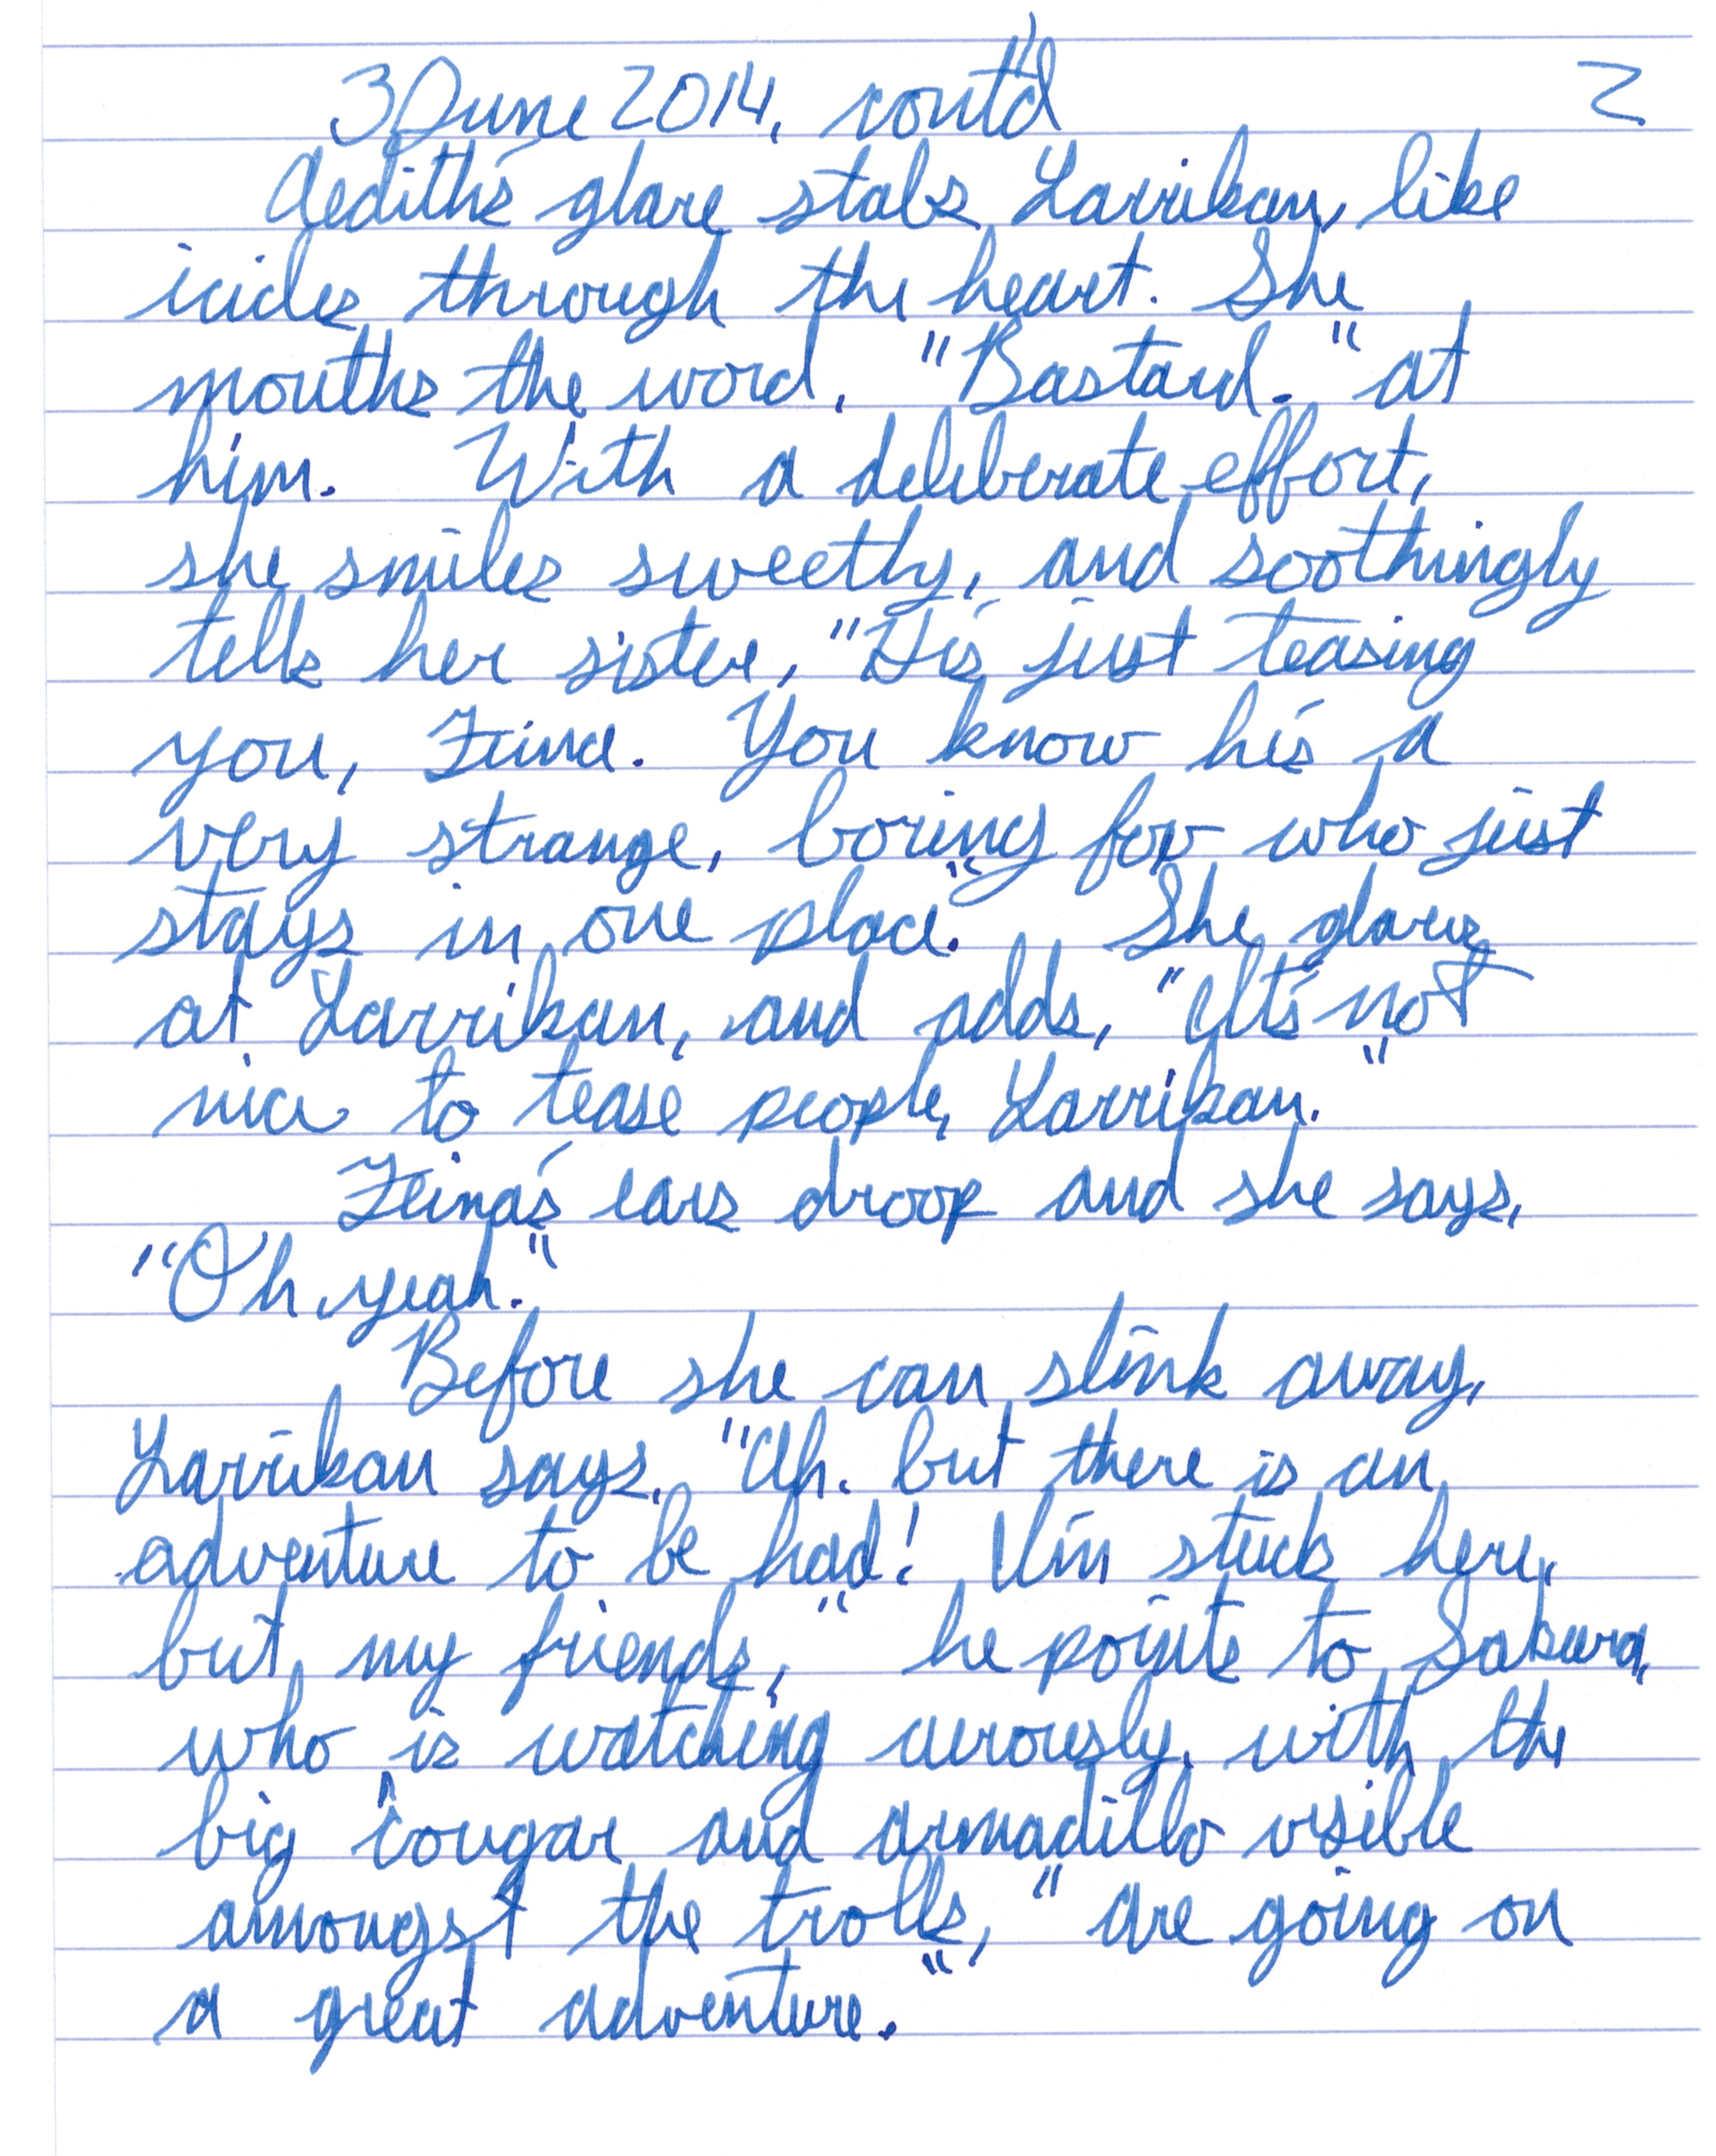 3 June 2014, cont'd 2
Aedith's glare stabs Larrikan, like
icicles through the heart. She
mouths the word, "Bastard." at
him. With a deliberate effort,
she smiles sweetly, and soothingly
tells her sister, "He's just teasing
you, Feina. You know he's a
very strange, boring fox who just
stays in one place." She glares
at Larrikan, and adds, "It's not
nice to tease people, Larrikan."
Feina's ears droop and she says,
"Oh yeah."
Before she can slink away,
Larrikan says, "Ah, but there is an
adventure to be had! I'm stuck here,
but my friends," he points to Sakura,
who is watching curiously, with the
big cougar and armadillo visible
amongst the trolls, "are going on
a great adventure."